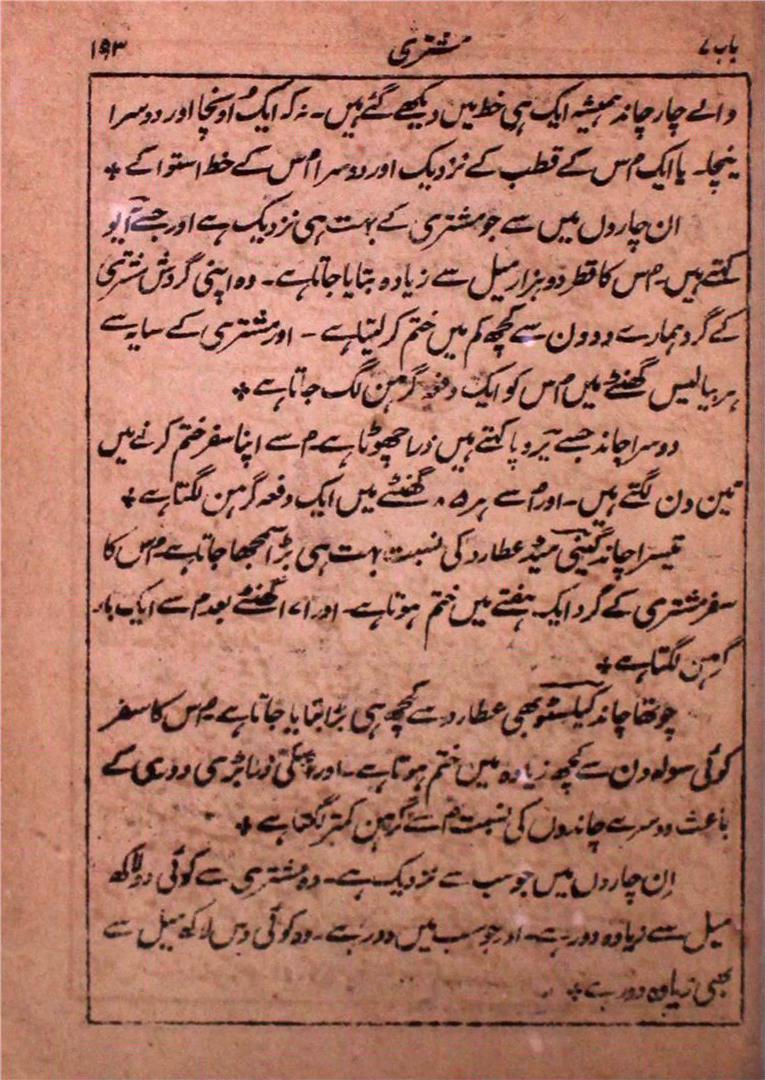 باب ۷ مشتری ۱۹۳
والے چار چاند ہمیشہ ایک ہی خط میں دیکھے گئے ہیں۔ نہ کہ ایک اُونچا اور دوسرا
نیچا۔ یا ایک اُس کے قطب کے نزدیک اور دوسرا اُس کے خط استوا کے *
ان چاروں میں سے جو مشتری کے بہت ہی نزدیک ہے اور جسے آیو
کہتے ہیں۔ اُس کا قطر دو ہزار میل سے زیادہ بتایا جاتا ہے۔ وہ اپنی گردش مشتری
کے گرد ہمارے دو دن سے کچھ کم میں ختم کر لیتا ہے۔ اور مشتری کے سایہ سے
ہر بیالیس گھنٹے میں اُس کو ایک دفعہ گرہن لگ جاتا ہے *
دوسرا چاند جسے یُروپا کہتے ہیں ذرا چھوٹا ہے اُسے اپنا سفر ختم کرنے میں
تین دن لگتے ہیں۔ اور اُسے ہر ۸۵ گھنٹے میں ایک دفعہ گرہن لگتا ہے *
تیسرا چاند گینی میڈ عطارد کی نسبت بہت ہی بڑا سمجھا جاتا ہے اُس کا
سفر مشتری کے گرد ایک ہفتے میں ختم ہوتا ہے۔ اور ۱۷۱ گھنٹے بعد اُسے ایک بار
گرہن لگتا ہے *
چوتھا چاند کیلسٹو بھی عطارد سے کچھ ہی بڑا بتایا جاتا ہے۔ اُس کا سفر
کوئی سولہ دن سے کچھ زیادہ میں ختم ہوتا ہے۔ اور اِسکی ذرا بڑی دوری کے
باعث دوسرے چاندوں کی نسبت اُسے گرہن کمتر لگتا ہے *
اِن چاروں میں جو سب سے نزدیک ہے۔ وہ مشتری سے کوئی دو لاکھ
میل سے زیادہ دور ہے۔ اور جو سب میں دور ہے۔ وہ کوئی دس لاکھ میل سے
بھی زیادہ دور ہے *